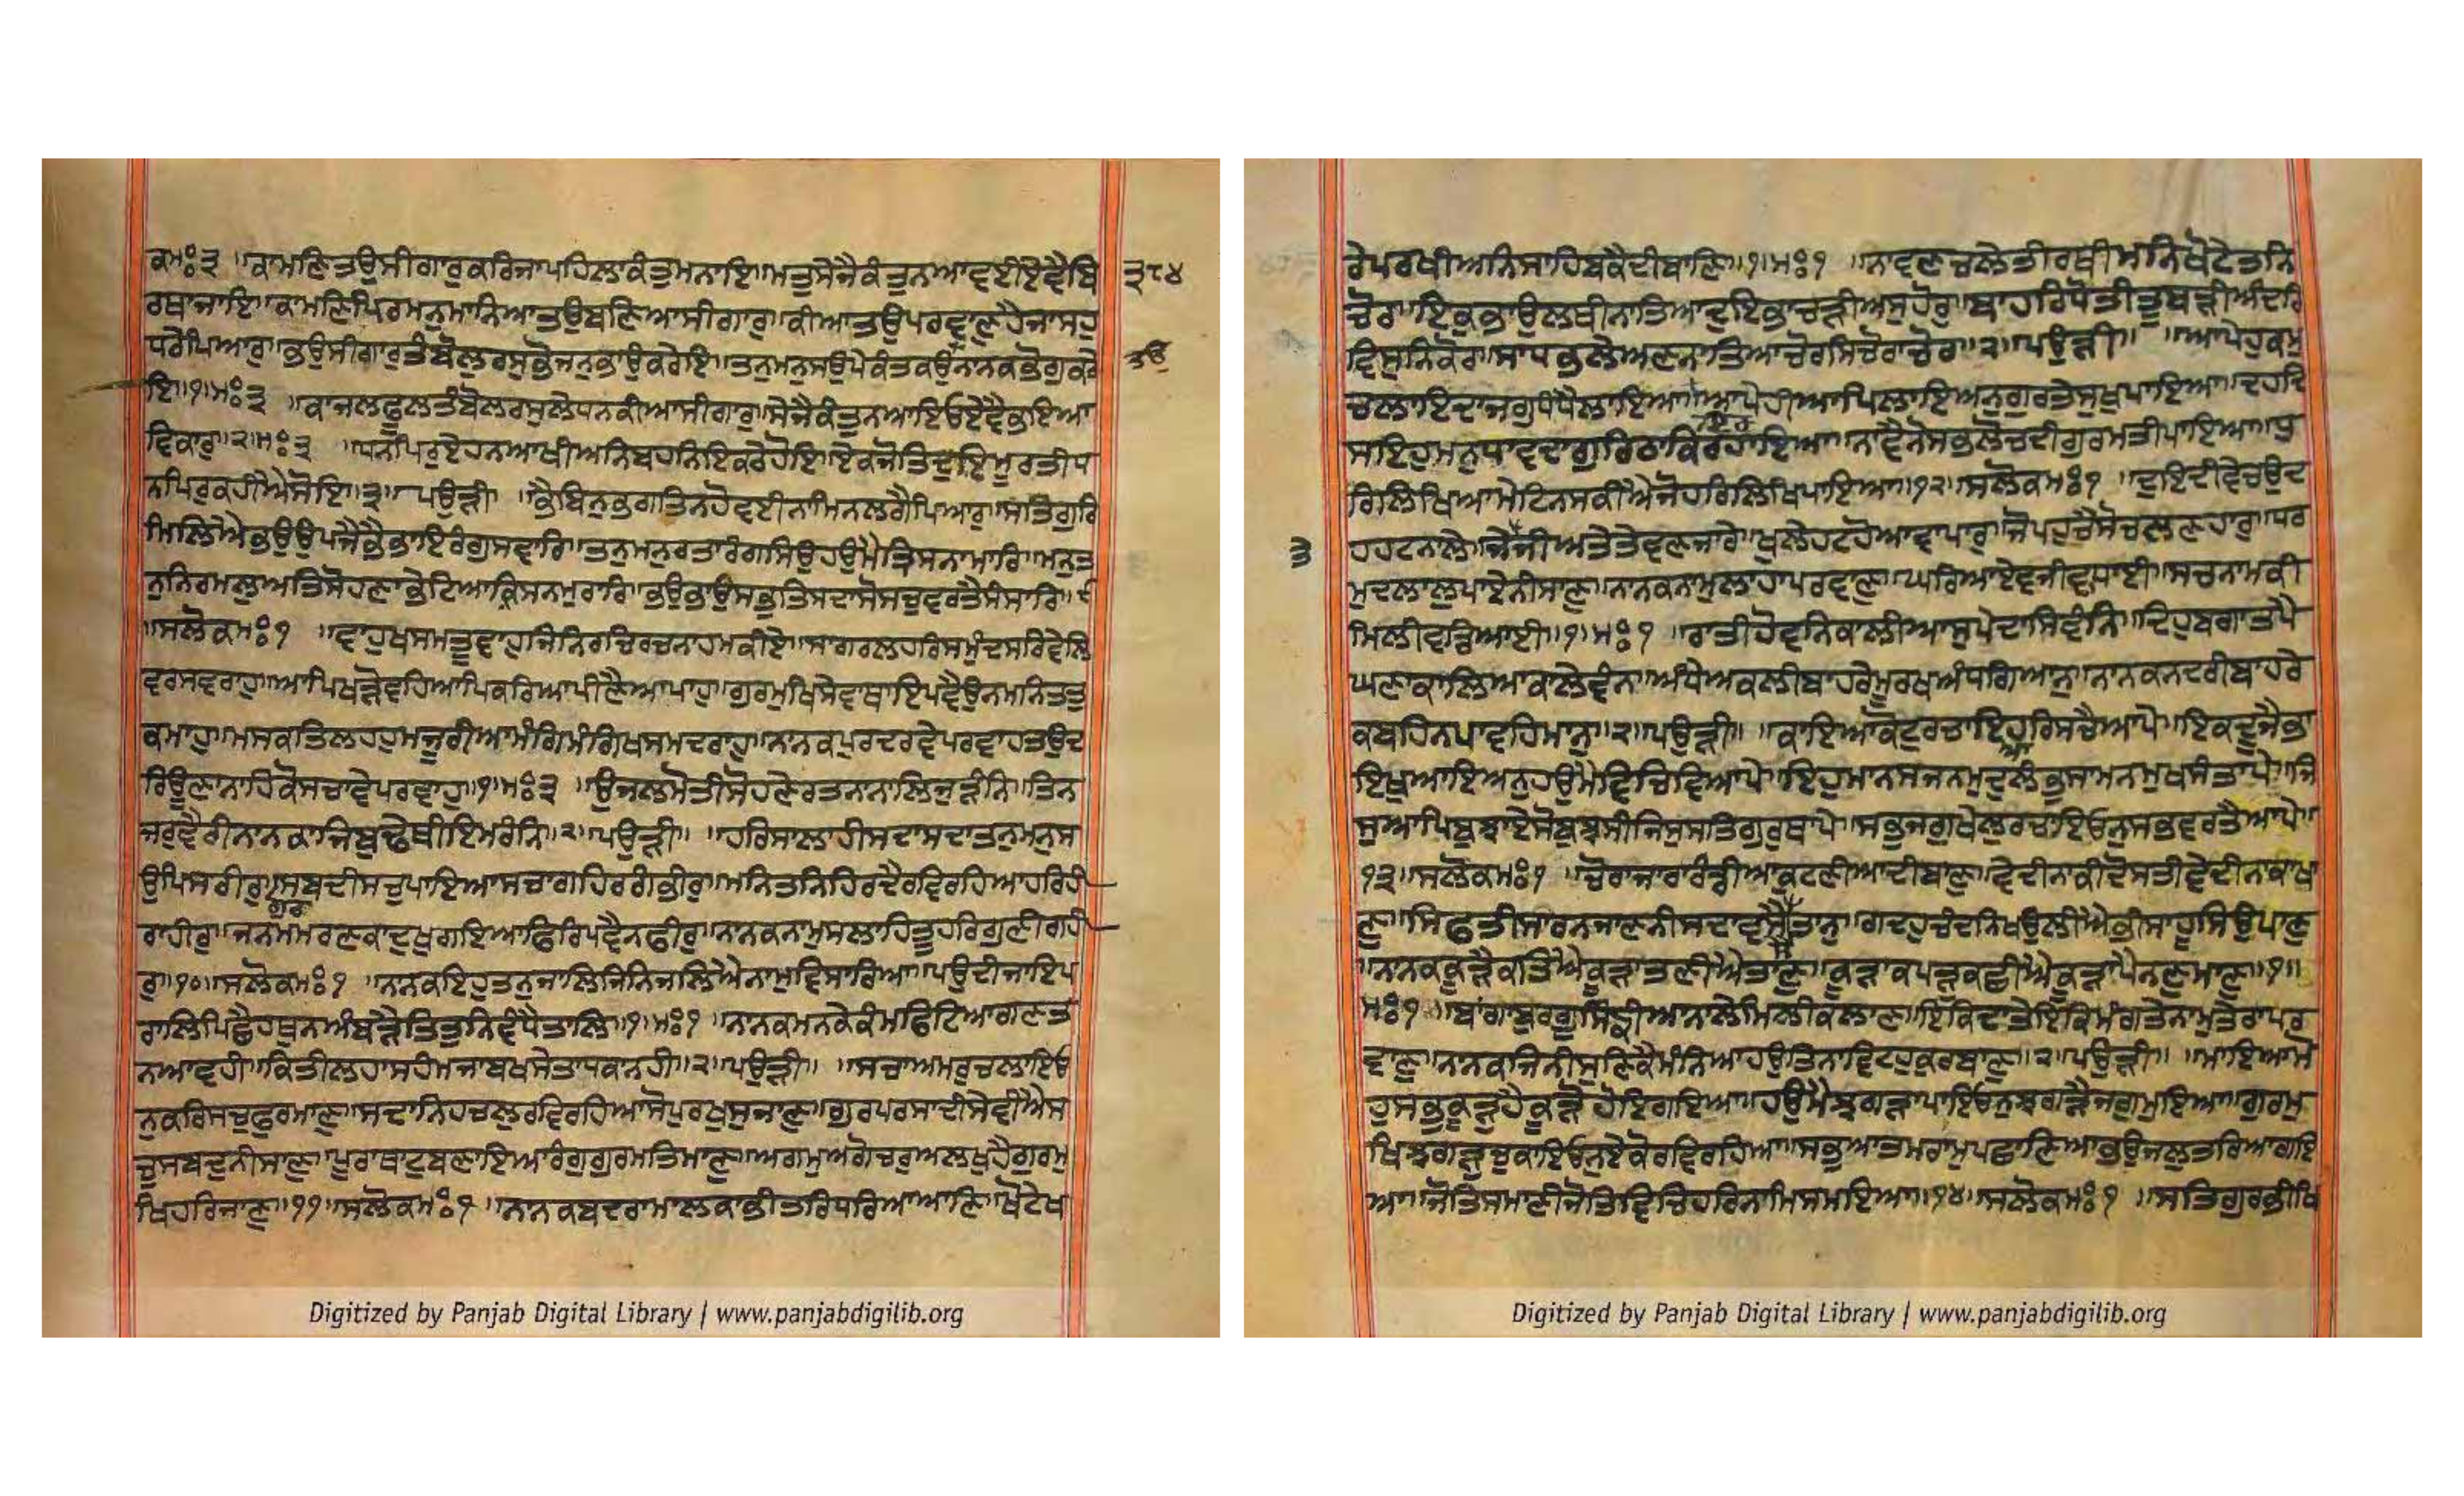 ਕਮਃ੩ ॥ਕਾਮਣਿਤਉਸੀਗਾਰੁਕਰਿਜਾਪਹਿਲਾਕੰਤੁਮਨਾਇ॥ਮਤੁਸੇਜੈਕੰਤੁਨਆਵਈਏਵੈਬਿ
੩੮੪
ਰਥਾਜਾਇ॥ਕਾਮਣਿਪਿਰਮਨੁਮਾਨਿਆਤਉਬਣਿਆਸੀਗਾਰੁ॥ਕੀਆਤਉਪਰਵਾਣੁਹੈਜਾਸਹੁ
ਧਰੇਪਿਆਰੁ॥ਭਉਸੀਗਾਰੁਤੰਬੋਲਰਸੁਭੋਜਨੁਭਾਉਕਰੇਇ॥ਤਨੁਮਨੁਸਉਪੇਕੰਤਕਉਨਾਨਕਭੋਗੁਕਰੇ
ਇ॥੧॥ਮਃ੩ ॥ਕਾਜਲਫੂਲਤੰਬੋਲਰਸੁਲੇਧਨਕੀਆਸੀਗਾਰੁ॥ਸੇਜੈਕੰਤੁਨਆਇਓਏਵੈਭਇਆ
ਵਿਕਾਰੁ॥੨॥ਮਃ੩ ॥ਧਨਪਿਰੁਏਹਨਆਖੀਅਨਿਬਹਨਿਇਕਠੇਹੋਇ॥ਏਕਜੋਤਿਦੁਇਮੂਰਤੀਧ
ਨਪਿਰੁਕਹੀਐਸੋਇ॥੩॥ਪਉੜੀ ॥ਭੈਬਿਨੁਭਗਤਿਨਹੋਵਈਨਾਮਿਨਲਗੈਪਿਆਰੁ॥ਸਤਿਗੁਰਿ
ਮਿਲਿਐਭਉਊਪਜੈਭੈਭਾਇਰੰਗੁਸਵਾਰਿ॥ਤਨੁਮਨੁਰਤਾਰੰਗਸਿਉਹਉਮੈਤ੍ਰਿਸਨਾਮਾਰਿ॥ਮਨੁਤ
ਨੁਨਿਰਮਲੁਅਤਿਸੋਹਣਾਭੇਟਿਆਕ੍ਰਿਸਨਮੁਰਾਰਿ॥ਭਉਭਾਉਸਭੁਤਿਸਦਾਸੋਸਚੁਵਰਤੈਸੰਸਾਰਿ॥੯
॥ਸਲੋਕਮਃ੧ ॥ਵਾਹੁਖਸਮਤੂਵਾਹੁਜਿਨਿਰਚਿਰਚਨਾਹਮਕੀਏ॥ਸਾਗਰਲਹਰਿਸਮੁੰਦਸਰਿਵੇਲਿ
ਵਰਸਵਰਾਹੁ॥ਆਪਿਖੜੋਵਹਿਆਪਿਕਰਿਆਪੀਣੈਆਪਾਹੁ॥ਗੁਰਮੁਖਿਸੇਵਾਥਾਇਪਵੈਉਨਮਨਿਤਤੁ
ਕਮਾਹੁ॥ਮਸਕਤਿਲਹਹੁਮਜੂਰੀਆਮੰਗਿਮੰਗਿਖਸਮਦਰਾਹੁ॥ਨਾਨਕਪੁਰਦਰਵੇਪਰਵਾਹਤਉਦ
ਰਿਊਣਾਨਾਹਿਕੋਸਚਾਵੇਪਰਵਾਹੁ॥੧॥ਮਃ੩ ॥ਉਜਲਮੋਤੀਸੋਹਣੇਰਤਨਾਨਾਲਿਜੁੜੰਨਿ॥ਤਿਨ
ਜਰੁਵੈਰੀਨਾਨਕਾਜਿਬੁਢੇਥੀਇਮਰੰਨਿ॥੨॥ਪਉੜੀ॥ ॥ਹਰਿਸਾਲਾਹੀਸਦਾਸਦਾਤਨੁਮਨੁਸ
ਉਪਿਸਰੀਰੁ॥ਸਬਦੀਸਚੁਪਾਇਆਸਚਾਗਹਿਰਗੰਭੀਰੁ॥ਮਨਿਤਨਿਹਿਰਦੈਰਵਿਰਹਿਆਹਰਿਹੀ
ਗੁਰ
ਰਾਹੀਰੁ॥ਜਨਮਮਰਣਕਾਦੁਖੁਗਇਆਫਿਰਿਪਵੈਨਫੀਰੁ॥ਨਾਨਕਨਾਮੁਸਲਾਹਿਤੂਹਰਿਗੁਣੀਗਹੀ
ਰੁ॥੧੦॥ਸਲੋਕਮਃ੧ ॥ਨਾਨਕਇਹੁਤਨੁਜਾਲਿਜਿਨਿਜਲਿਐਨਾਮੁਵਿਸਾਰਿਆ॥ਪਉਦੀਜਾਇਪ
ਰਾਲਿਪਿਛੈਹਥੁਨਅੰਬੜੈਤਿਤੁਨਿਵੰਧੈਤਾਲਿ॥੧॥ਮਃ੧ ॥ਨਾਨਕਮਨਕੇਕੰਮਫਿਟਿਆਗਣਤ
ਨਆਵਹੀ॥ਕਿਤੀਲਹਾਸਹੰਮਜਾਬਖਸੇਤਾਧਕਾਨਹੀ॥੨॥ਪਉੜੀ॥ ॥ਸਚਾਅਮਰੁਚਲਾਇਓ
ਨੁਕਰਿਸਚੁਫੁਰਮਾਣੁ॥ਸਦਾਨਿਹਚਲੁਰਵਿਰਹਿਆਸੋਪੁਰਖੁਸੁਜਾਣੁ॥ਗੁਰਪਰਸਾਦੀਸੇਵੀਐਸ
ਚੁਸਬਦੁਨੀਸਾਣੁ॥ਪੂਰਾਥਾਟੁਬਣਾਇਆਰੰਗੁਗੁਰਮਤਿਮਾਣੁ॥ਅਗਮੁਅਗੋਚਰੁਅਲਖੁਹੈਗੁਰਮੁ
ਖਿਹਰਿਜਾਣੁ॥੧੧॥ਸਲੋਕਮਃ੧ ॥ਨਾਨਕਬਦਰਾਮਾਲਕਾਭੀਤਰਿਧਰਿਆਆਣਿ॥ਖੋਟੇਖ
Digitized by Panjab Digital Library | www.panjabdigilib.org
ਰੇਪਰਖੀਅਨਿਸਾਹਿਬਕੈਦੀਬਾਣਿ॥੧॥ਮਃ੧ ॥ਨਾਵਣਚਲੇਤੀਰਥੀਮਨਿਖੋਟੈਤਨਿ
ਚੋਰ॥ਇਕੁਭਾਉਲਥੀਨਾਤਿਆਦੁਇਭਾਚੜੀਅਸੁਹੋਰੁ॥ਬਾਹਰਿਧੋਤੀਤੂਬੜੀਅੰਦਰਿ
ਵਿਸੁਨਿਕੋਰ॥ਸਾਧਭਲੇਅਣਨਾਤਿਆਚੋਰਸਿਚੋਰਾਚੋਰ॥੨॥ਪਉੜੀ॥ ॥ਆਪੇਹੁਕਮੁ
ਚਲਾਇਦਾਜਗੁਧੰਧੈਲਾਇਆ॥ਆਪੇਹੀਆਪਿਲਾਇਅਨੁਗੁਰਤੇਸੁਖੁਪਾਇਆ॥ਦਹਦਿ
ਸਇਹੁਮਨੁਧਾਵਦਾਗੁਰਿਠਾਕਿਰਹਾਇਆ॥ਨਾਵੈਨੋਸਭਲੋਚਦੀਗੁਰਮਤੀਪਾਇਆ॥ਧੁ
ਰਿਲਿਖਿਆਮੇਟਿਨਸਕੀਐਜੋਹਰਿਲਿਖਿਪਾਇਆ॥੧੨॥ਸਲੋਕਮਃ੧ ॥ਦੁਇਦੀਵੇਚਉਦ
ਹਹਟਨਾਲੇ॥ਜੇਤੇਜੀਅਤੇਤੇਵਣਜਾਰੇ॥ਖੁਲੇਹਟਹੋਆਵਾਪਾਰੁ॥ਜੋਪਹੁਚੈਸੋਚਲਣਹਾਰੁ॥ਧਰ
ਮੁਦਲਾਲੁਪਾਏਨੀਸਾਣੁ॥ਨਾਨਕਨਾਮੁਲਾਹਾਪਰਵਾਣੁ॥ਘਰਿਆਏਵਜੀਵਾਧਾਈ॥ਸਚਨਾਮਕੀ
ਮਿਲੀਵਡਿਆਈ॥੧॥ਮਃ੧ ॥ਰਾਤੀਹੋਵਨਿਕਾਲੀਆਸੁਪੇਦਾਸੇਵੰਨਿ॥ਦਿਹੁਬਗਾਤਪੈ
ਘਣਾਕਾਲਿਆਕਾਲੇਵੰਨ॥ਅੰਧੇਅਕਲੀਬਾਹਰੇਮੂਰਖਅੰਧਗਿਆਨੁ॥ਨਾਨਕਨਦਰੀਬਾਹਰੇ
ਕਬਹਿਨਪਾਵਹਿਮਾਨੁ॥੨॥ਪਉੜੀ॥ ॥ਕਾਇਆਕੋਟੁਰਚਾਇਆਹਰਿਸਚੈਆਪੇ॥ਇਕਦੂਜੈਭਾ
ਇਖੁਆਇਅਨੁਹਉਮੈਵਿਚਿਵਿਆਪੇ॥ਇਹੁਮਾਨਸਜਨਮੁਦੁਲੰਭੁਸਾਮਨਮੁਖਸੰਤਾਪੇ॥ਜਿ
ਸੁਆਪਿਬੁਝਾਏਸੋਬੁਝਸੀਜਿਸੁਸਤਿਗੁਰੁਥਾਪੇ॥ਸਭੁਜਗੁਖੇਲੁਰਚਾਇਓਨੁਸਭਵਰਤੈਆਪੇ॥
੧੩॥ਸਲੋਕਮਃ੧ ॥ਚੋਰਾਜਾਰਾਰੰਡੀਆਕੁਟਣੀਆਦੀਬਾਣੁ॥ਵੇਦੀਨਾਕੀਦੋਸਤੀਵੇਦੀਨਾਕਾਖਾ
ਣੁ॥ਸਿਫਤੀਸਾਰਨਜਾਣਨੀਸਦਾਵਸੈਸੈਤਾਨੁ॥ਗਦਹੁਚੰਦਨਿਖਉਲੀਐਭੀਸਾਹੂਸਿਉਪਾਣੁ
॥ਨਾਨਕਕੂੜੈਕਤਿਐਕੂੜਾਤਣੀਐਤਾਣੁ॥ਕੂੜਾਕਪੜੁਕਛੀਐਕੂੜਾਪੈਨਣੁਮਾਣੁ॥੧॥
ਮਃ੧ ॥ਬਾਂਗਾਬੁਰਗੂਸਿੰਙੀਆਨਾਲੇਮਿਲੀਕਲਾਣ॥ਇਕਿਦਾਤੇਇਕਿਮੰਗਤੇਨਾਮੁਤੇਰਾਪਰ
ਵਾਣੁ॥ਨਾਨਕਜਿਨੀਸੁਣਿਕੈਮੰਨਿਆਹਉਤਿਨਾਵਿਟਹੁਕੁਰਬਾਣੁ॥੨॥ਪਉੜੀ॥ ॥ਮਾਇਆਮੋ
ਹੁਸਭੁਕੂੜੁਹੈਕੂੜੋਹੋਇਗਇਆ॥ਹਉਮੈਝਗੜਾਪਾਇਓਨੁਝਗੜੈਜਗੁਮੁਇਆ॥ਗੁਰਮੁ
ਖਿਝਗੜੁਚੁਕਾਇਓਨੁਏਕੋਰਵਿਰਹਿਆ॥ਸਭੁਆਤਮਰਾਮੁਪਛਾਣਿਆਭਉਜਲੁਤਰਿਆਗਇ
ਆ॥ਜੋਤਿਸਮਾਣੀਜੋਤਿਵਿਚਿਹਰਿਨਾਮਿਸਮਇਆ॥੧੪॥ਸਲੋਕਮਃ੧ ॥ਸਤਿਗੁਰਭੀਖਿ
Digitized by Panjab Digital Library | www.panjabdigilib.org